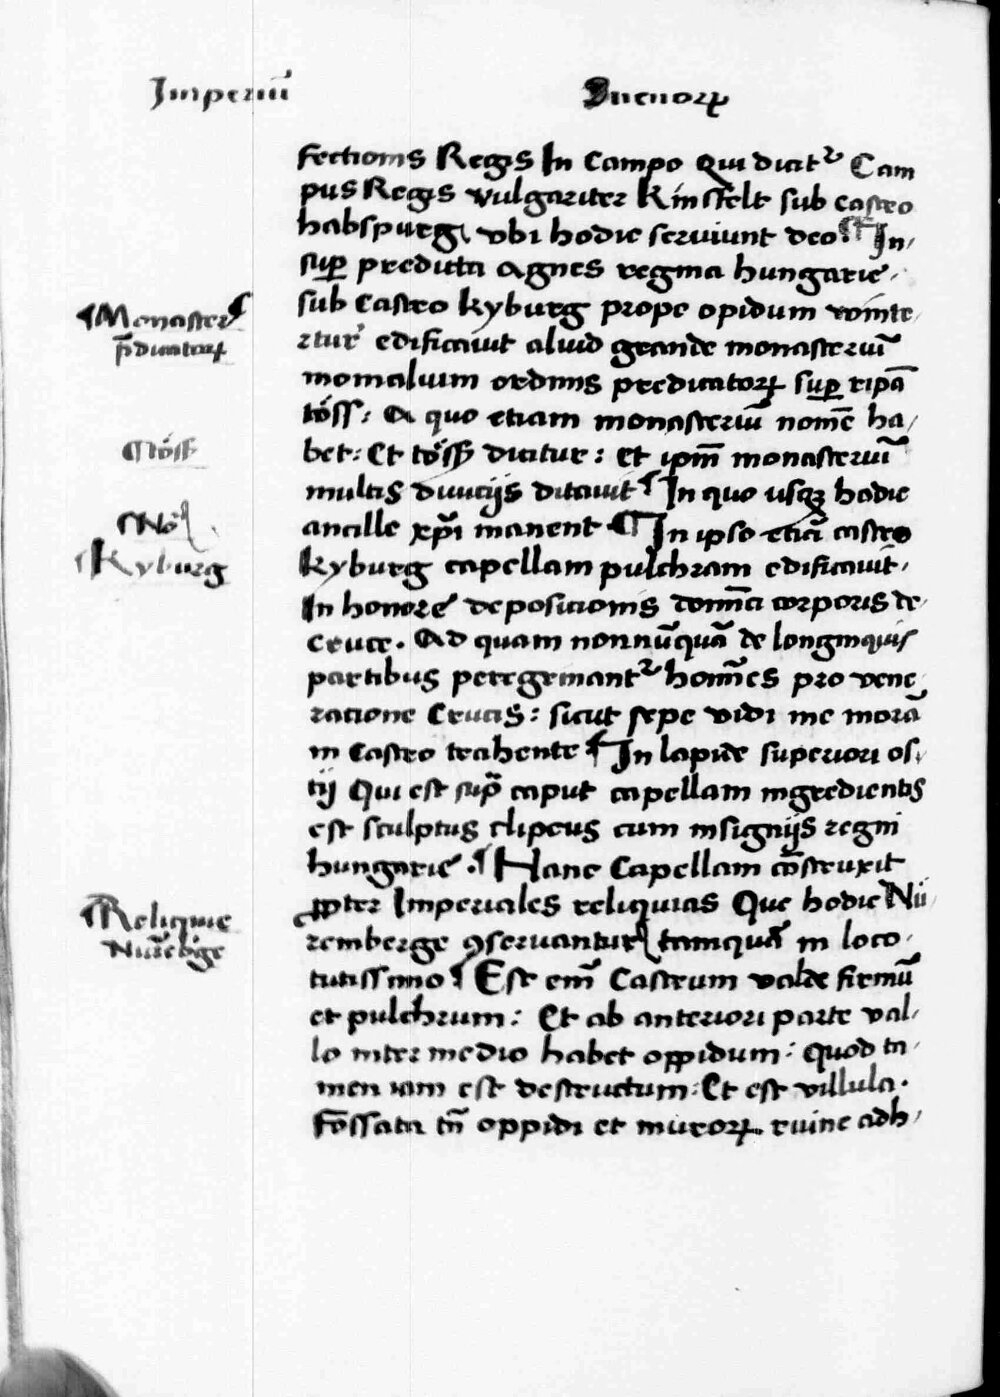 Imperiũ Ducnorꝝ
fectionis Regis In Campo Qui dicitᷣ Cam
pus Regis vulgariter Kinsfelt sub castro
habspurg, vbi hodie seruiunt deo. ¶ In/
suꝑ predicta Agnes regina hungarie.
sub Castro kyburg prope opidum winte/
¶ Monaster
p̃dicatorꝝ
rtur edificauit aliud grande monasteriũ
monialium ordinis predicatorꝝ suꝑ ripã
töss: A quo etiam monasteriũ nomẽ ha/
¶ Töss
bet: Et töss dicitur: et ipm̃ monasteriũ
multis diuicijs ditauit ¶ In quo usqꝫ hodie
¶ Nõ
ancille xp̃i manent ¶ In ipso etiã castro
Kyburg
kyburg capellam pulchram edificauit.
In honore depositionis dominici corporis de/
Cruce. Ad quam nonnũquã de longinquis
partibus peregrinantᷣ homĩes pro vene/
ratione Crucis: sicut sepe vidi me morã
in Castro trahente ¶ In lapide superiori os/
tij Qui est supra caput capellam ingredientis
est sculptus clipeus cum insignijs regni
hungarie. ¶ Hanc Capellam cõstruxit
¶ Reliquie
ꝓpter Imperiales reliquias Que hodie Nü/
Nurẽbͥge
remberge ꝯseruantur, tamquã in loco.
tutissimo ¶ Est enĩ Castrum valde firmũ
et pulchrum: Et ab anteriori parte val/
lo inter medio habet oppidum: Quod ta/
men iam est destructum: Et est villula.
Fossata tñ oppidi et murorꝝ ruine adh/